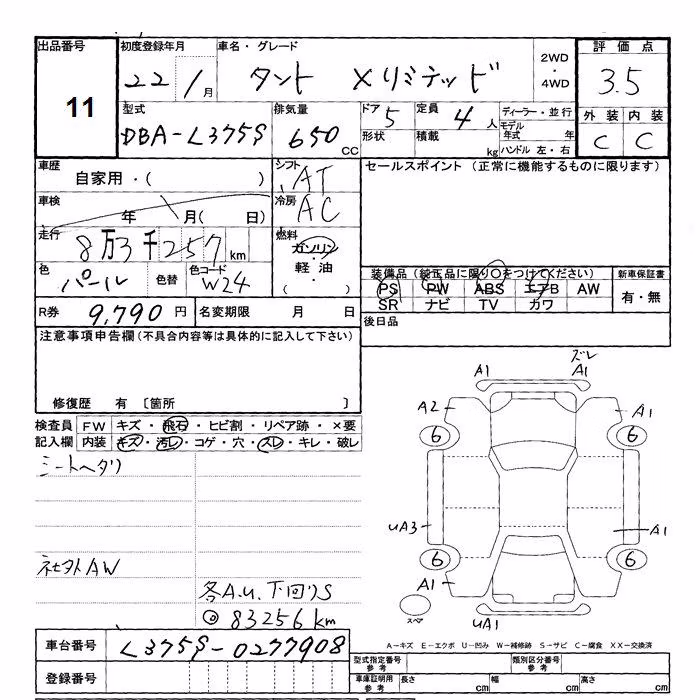 出品番号
11
初度登録年月
22/1月
車名・グレード
タント Xリミテッド
2WD
・
4WD
評価点
3.5
型式
DBA-L375S
排気量
650 CC
ドア 5
形状
定員 4 人
積載 kg
ディーラー・並行
モデル年式 年
ハンドル 左・右
外装 内装
C C
車歴
自家用・( )
シフト
AT
車検
年 月( 日)
冷房
AC
セールスポイント (正常に機能するものに限ります)
走行
8万3千257km
燃料
ガソリン
・
軽油
( )
色
パール
色替
色コード
W24
装備品 (純正品に限り〇をつけてください)
PS PW ABS エアB AW
SR ナビ TV カワ
新車保証書
有・無
R券 9,790円
名変期限 月 日
後日品
注意事項申告欄(不具合内容等は具体的に記入して下さい)
修復歴 有〔箇所 〕
検査員 FW キズ・飛石・ヒビ割・リペア跡・×要
記入欄 内装 キズ・汚レ・コゲ・穴・スレ・キレ・破レ
シートヘタリ
社外AW
各A.U.下回りS
◎83256km
ズレ
A1 A1
A2 A1
6 6
UA3 A1
6 6
A1
UA1
スペア
A-キズ E-エクボ U-凹み W-補修跡 S-サビ C-腐食 XX-交換済
車台番号 L375S-0277908
登録番号
型式指定番号
参考
類別区分番号
参考
車庫証明用
参考
長さ cm 幅 cm 高さ cm